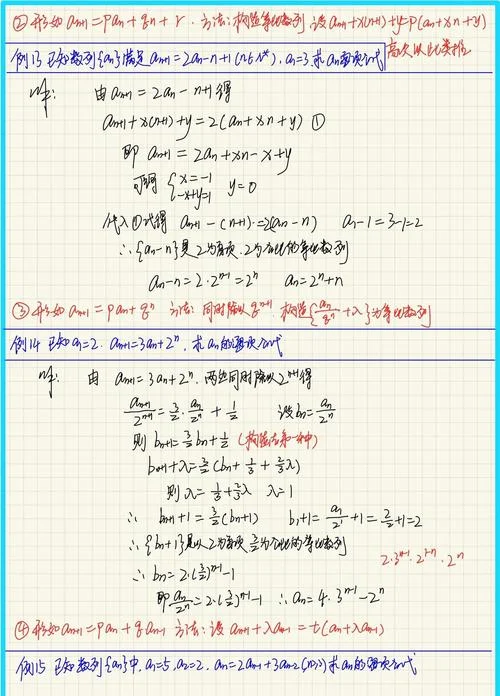 ② 形如 aₙ₊₁=paₙ+qn+r. 方法:构造等比数列 设aₙ₊₁+x(n+1)+y=p(aₙ+xn+y)
高次以此类推
例13 已知数列{aₙ}满足aₙ₊₁=2aₙ-n+1(n∈N*), a₁=3,求aₙ通项公式
解: 由aₙ₊₁=2aₙ-n+1得
aₙ₊₁+x(n+1)+y=2(aₙ+xn+y) ①
即 aₙ₊₁=2aₙ+xn-x+y
可得 {x=-1 -x+y=1 y=0
代入①式得 aₙ₊₁-(n+1)=2(aₙ-n) a₁-1=3-1=2
∴{aₙ-n}是2为首项,2为公比的等比数列
aₙ-n=2·2ⁿ⁻¹=2ⁿ aₙ=2ⁿ+n
③ 形如 aₙ₊₁=paₙ+qⁿ 方法:同时除以qⁿ⁺¹,构造{aₙ/qⁿ+λ}为等比数列
例14 已知a₁=2, aₙ₊₁=3aₙ+2ⁿ,求aₙ的通项公式
解: 由 aₙ₊₁=3aₙ+2ⁿ,两边同时除以2ⁿ⁺¹得
aₙ₊₁/2ⁿ⁺¹=3/2·aₙ/2ⁿ+1/2 设bₙ=aₙ/2ⁿ
则 bₙ₊₁=3/2bₙ+1/2 (构造法第一种)
bₙ₊₁+λ=3/2(bₙ+1/3+2/3λ)
则 λ=1/3+2/3λ λ=1
∴ bₙ₊₁+1=3/2(bₙ+1) b₁+1=a₁/2¹+1=2/2+1=2
∴{bₙ+1}是以2为首项,3/2为公比的等比数列
∴ bₙ=2·(3/2)ⁿ⁻¹-1
2·3ⁿ⁻¹·2¹⁻ⁿ·2ⁿ
即aₙ/2ⁿ=2·(3/2)ⁿ⁻¹-1 ∴aₙ=4·3ⁿ⁻¹-2ⁿ
④ 形如aₙ₊₁=paₙ+qaₙ₋₁ 方法:设 aₙ₊₁+λaₙ=t(aₙ+λaₙ₋₁)
例15 已知数列{aₙ}中,a₁=5,a₂=2, aₙ=2aₙ₋₁+3aₙ₋₂(n≥3)求aₙ的通项公式